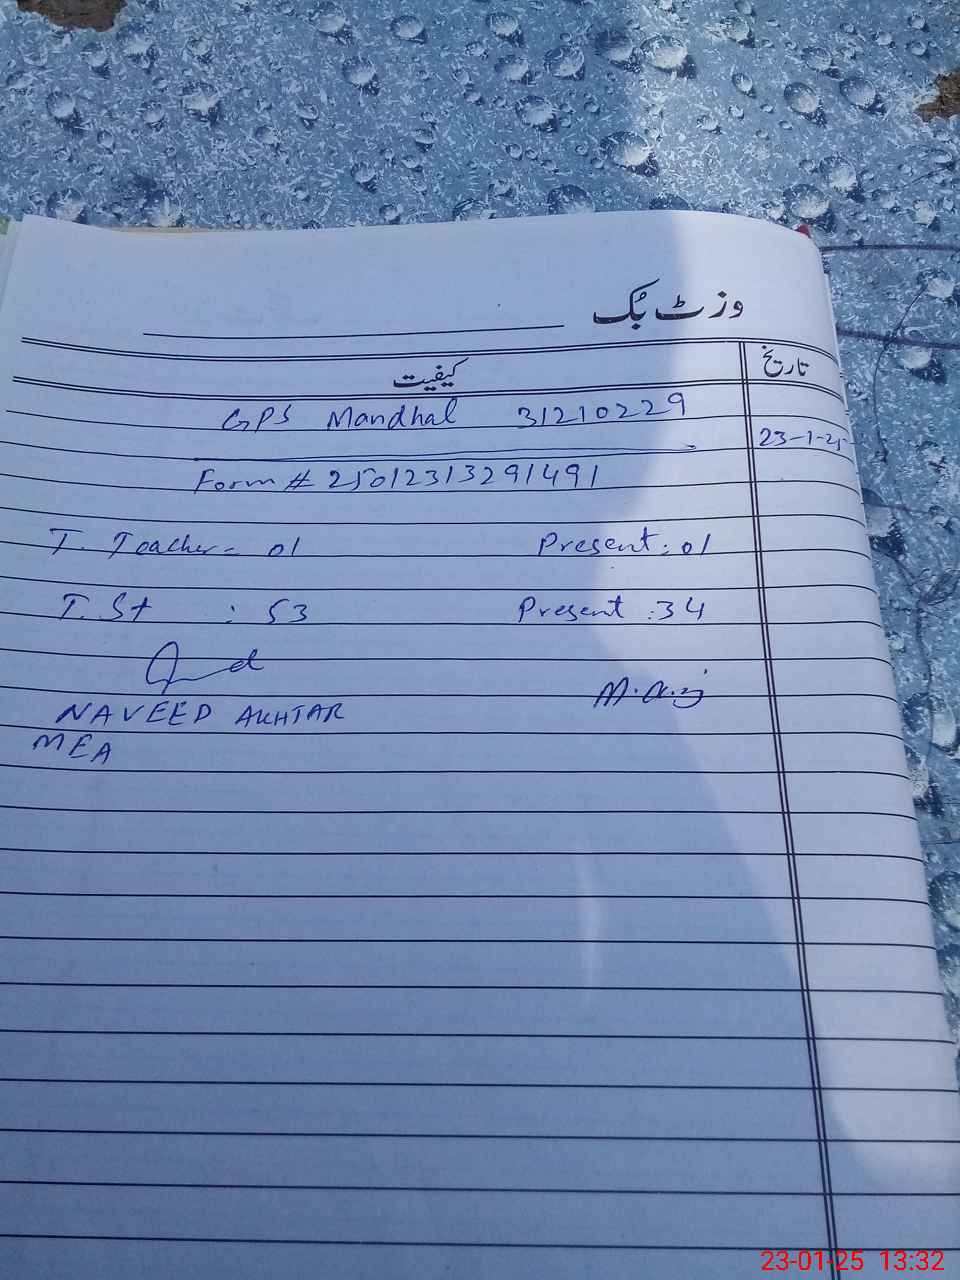 وزٹ بُک
کیفیت تاریخ
GPS Mandhal 31210229
23-1-25
Form # 25012313291491
T. Teacher - 01 Present : 01
T. St : 53 Present : 34
NAVEED AKHTAR
MEA
23-01-25 13:32